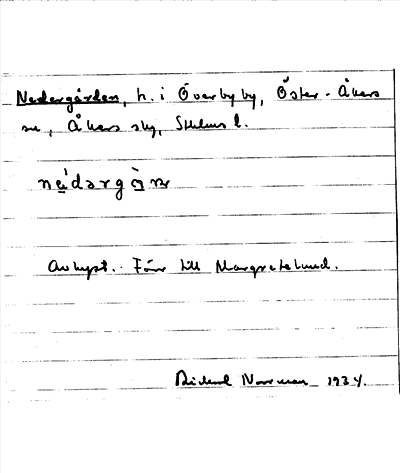 Nedergården, h. i Överby by, Öster-Åkers
sn, Åkers skg, Sthlms l.
Avhyst. Förr till Margretelund.
Rickard Norrman 1934.